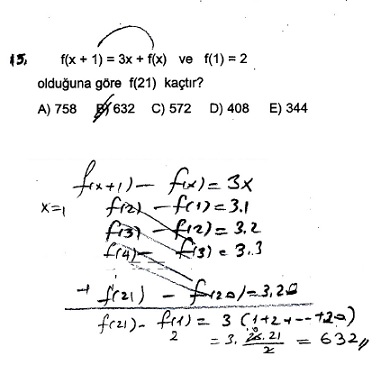 15. f(x + 1) = 3x + f(x) ve f(1) = 2
olduğuna göre f(21) kaçtır?
A) 758 B) 632 C) 572 D) 408 E) 344
f(x+1) - f(x) = 3x
x=1 f(2) - f(1) = 3.1
f(3) - f(2) = 3.2
f(4) - f(3) = 3.3
+ f(21) - f(20) = 3.20
f(21) - f(1) = 3 (1+2+...+20)
2
= 3. 20.21/2 = 632